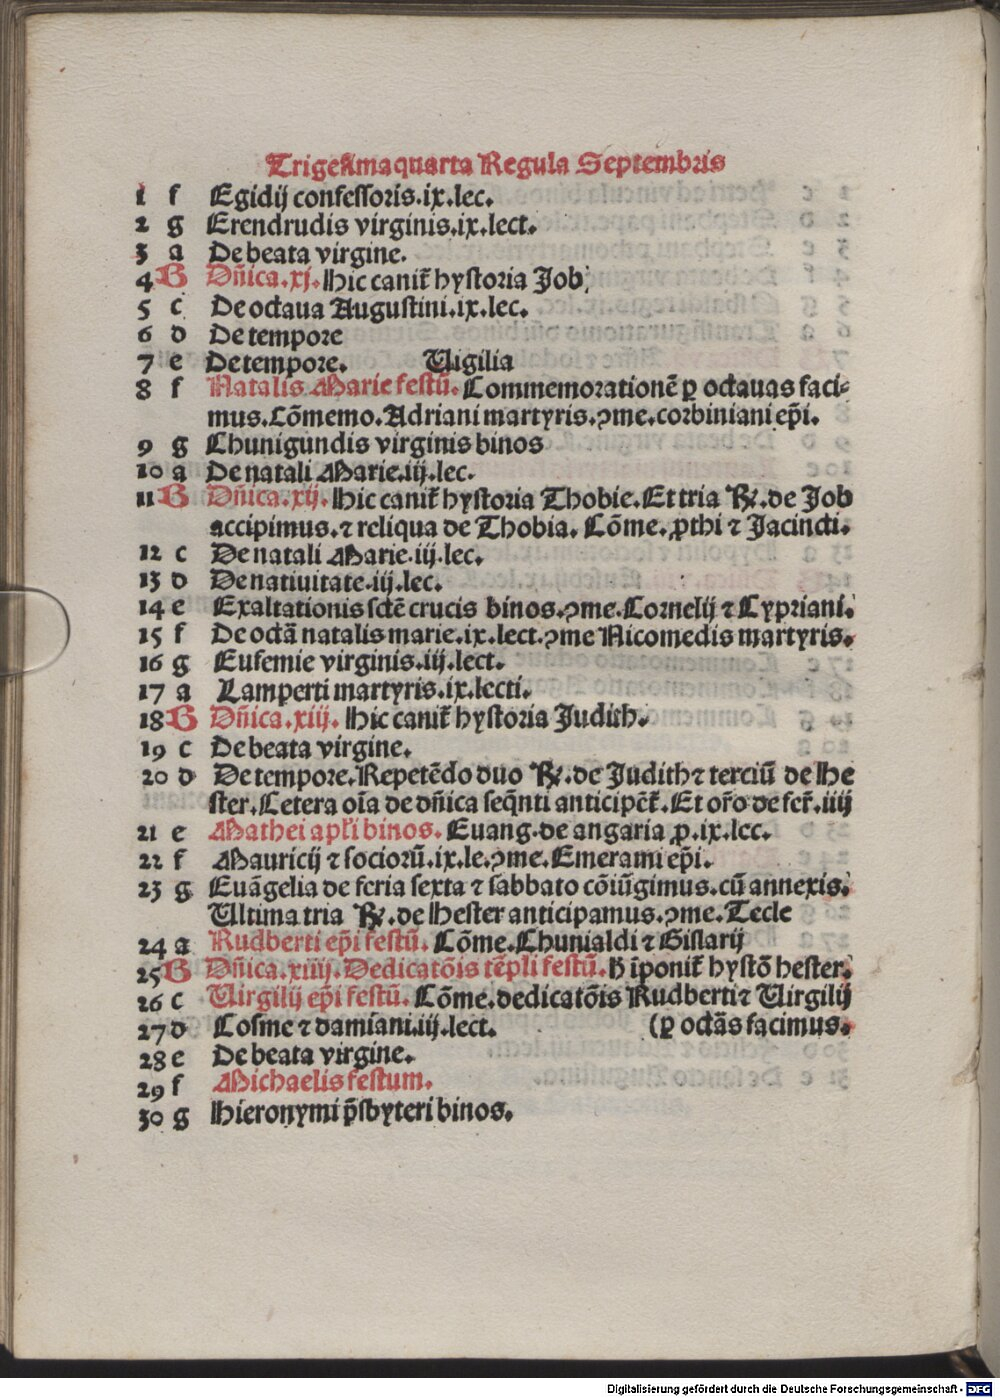 Trigesimaquarta Regula Septembris
1 f Egidij confessoris.ix.lec.
2 g Erendrudis virginis.ix.lect.
3 a De beata virgine.
4 B Dñica.xj. Hic canit̃ hystoria Job.
5 c De octaua Augustini.ix.lec.
6 d De tempore
7 e De tempore. Uigilia
8 f Natalis Marie festũ. Commemorationẽ ꝑ octauas faci-
mus. Cõmemo. Adriani martyris. ꝯme. corbiniani ep̃i.
9 g Chunigundis virginis binos
10 a De natali Marie.iij.lec.
11 B Dñica.xij. Hic canit̃ hystoria Thobie. Et tria ℟. de Job
accipimus. ⁊ reliqua de Thobia. Cõme. ꝓthi ⁊ Jacincti.
12 c De natali Marie.iij.lec.
13 d De natiuitate.iij.lec.
14 e Exaltationis sctẽ crucis binos. ꝯme. Cornelij ⁊ Cypriani.
15 f De octã natalis marie.ix.lect. ꝯme Nicomedis martyris.
16 g Eufemie virginis.iij.lect.
17 a Lamperti martyris.ix.lecti.
18 B Dñica.xiij. Hic canit̃ hystoria Judith.
19 c De beata virgine.
20 d De tempore. Repetẽdo duo ℟. de Judith ⁊ terciũ de He
ster. Cetera oĩa de dñica seq̃nti anticipẽt̃. Et or̃o de fer̃.iiij
21 e Mathei apl̃i binos. Euang. de angaria ꝓ.ix.lec.
22 f Mauricij ⁊ sociorũ.ix.le. ꝯme. Emerami ep̃i.
23 g Euãgelia de feria sexta ⁊ sabbato cõiũgimus. cũ annexis.
Ultima tria ℟. de Hester anticipamus. ꝯme. Tecle
24 a Rudberti ep̃i festũ. Cõme. Chunialdi ⁊ Gislarij
25 B Dñica.xiiij. Dedicatõis tẽpli festũ. h̃ ĩponit̃ hystõ hester.
26 c Uirgilij ep̃i festũ. Cõme. dedicatõis Rudberti ⁊ Uirgilij
27 d Cosme ⁊ damiani.iij.lect. (ꝑ octãs facimus.
28 e De beata virgine.
29 f Michaelis festum.
30 g Hieronymi p̃sbyteri binos.
Digitalisierung gefördert durch die Deutsche Forschungsgemeinschaft - DFG